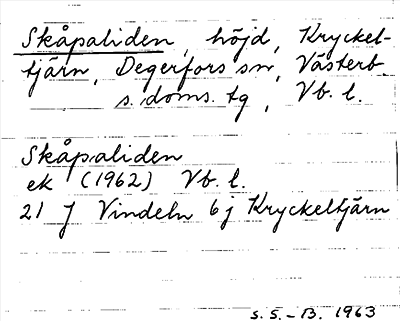 Skåpaliden, höjd, Kryckel-
tjärn, Degerfors sn, Västerb.
s. doms. tg, Vb. l.
Skåpaliden
ek (1962) Vb. l.
21 J Vindeln 6 j Kryckeltjärn
S. S.-B. 1963